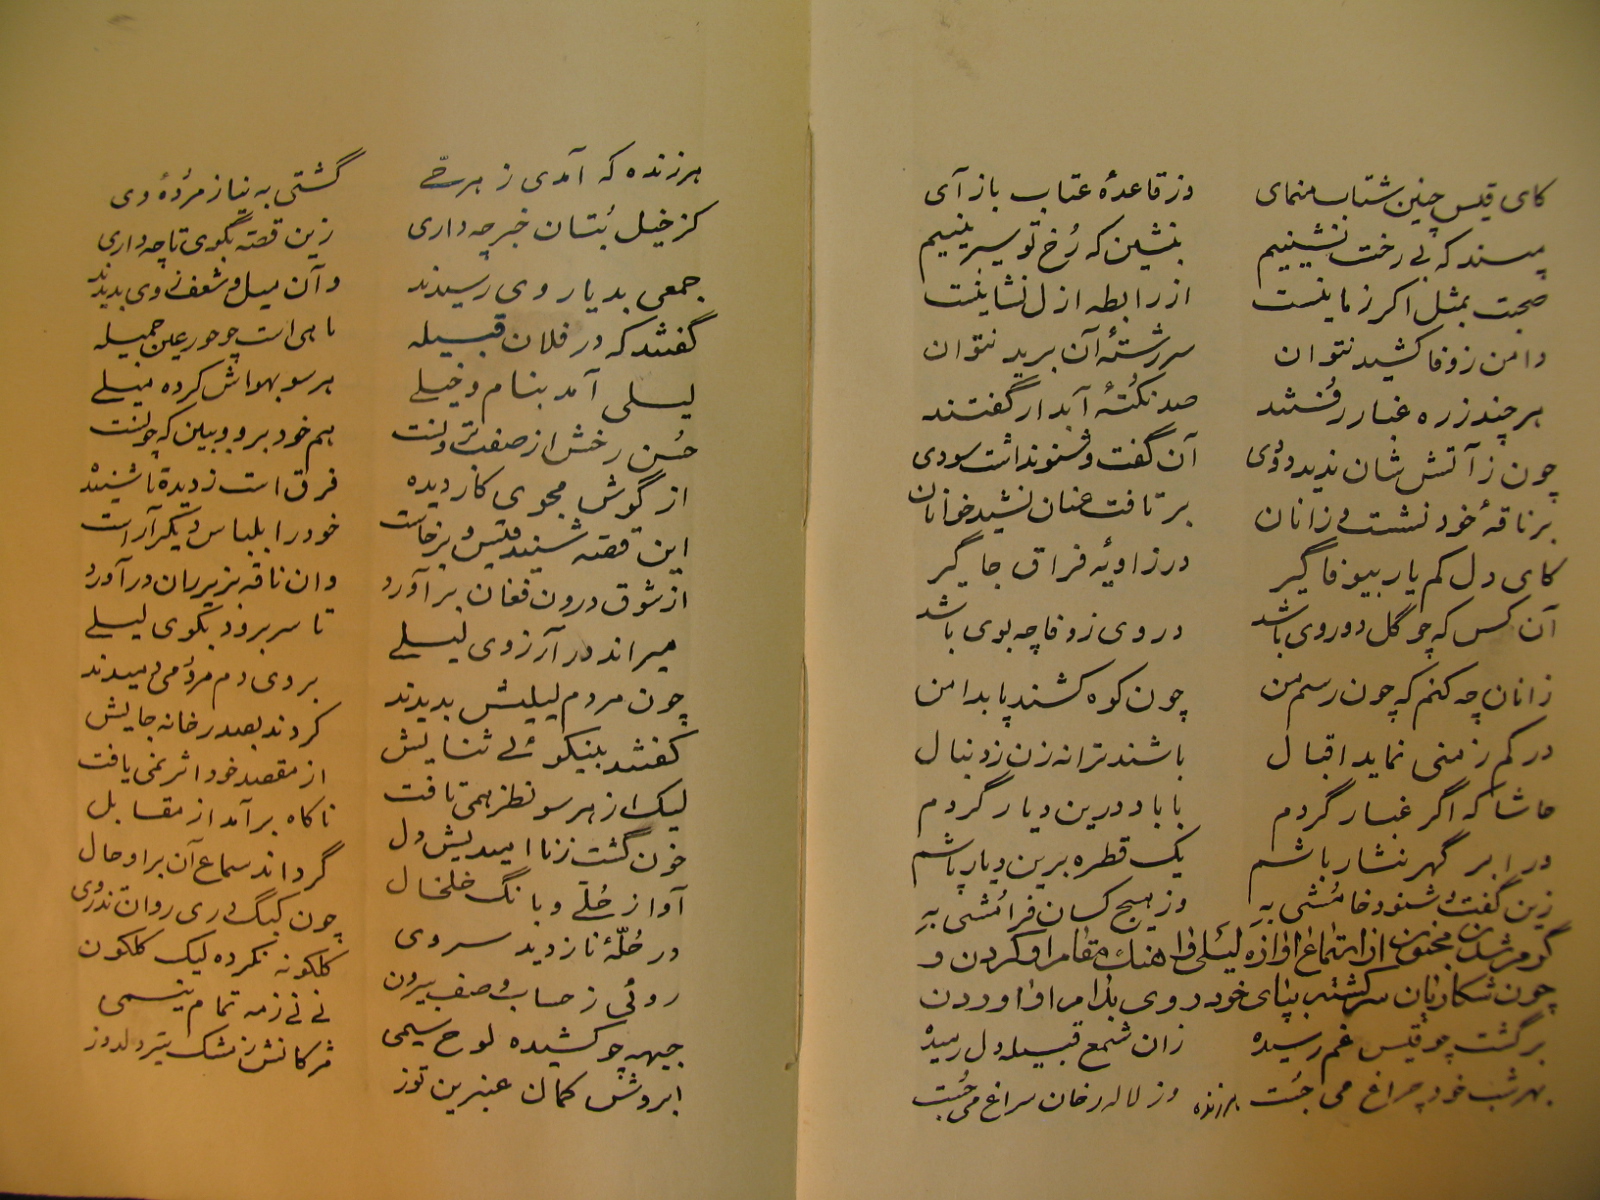 کای قیس چنین شتاب منمای وز قاعدهٔ عتاب باز آی
مپسند که بی رخت نشینیم بنشین که رُخ تو سیر بینیم
صحبت بمثل اگر زمانیست از رابطه ازل نشانیست
دامن ز وفا کشید نتوان سررشتهٔ آن برید نتوان
هر چند ز ره غبار رُفتند صد نکتهٔ آبدار گفتند
چون ز آتش شان ندید دودی آن گفت و شنو نداشت سودی
بر ناقهٔ خود نشست و زانان برتافت عنان نشید خوانان
کای دل کم یار بیوفا گیر در زاویهٔ فراق جا گیر
آن کس که چو گل دوروی باشد در وی ز وفا چه بوی باشد
زانان چه کنم که چون رسم من چون کوه کشند پا بدامن
در کم ز منی نماید اقبال باشند ترانه زن ز دنبال
حاشا که اگر غبار گردم با باد درین دیار گردم
در ابر گهر نثار باشم یک قطره برین دیار پاشم
زین گفت و شنود خامُشی به وز هیچ کسان فرامُشی به
گرم شدن مجنون از استماع آوازه لیلی و آهنگ مقام او کردن و
چون شکاریان سرگشته بپای خود روی بدام او آوردن
برگشت چو قیس غم رسیده زان شمع قبیله دل رمیده
بهر شب خود چراغ می جُست وز لاله رخان سراغ می جُست
هر زنده
هر زنده که آمدی ز هر حَی گشتی به نیاز مردهٔ وی
کز خیل بُتان خبر چه داری زین قصّه بگوی تا چه داری
جمعی بدیار وی رسیدند و آن میل و شعف ز وی بدیدند
گفتند که در فلان قبیله ماهی است چو حور عین جمیله
لیلی آمد بنام و خیلی هر سو بهواش کرده میلی
حُسن رخش از صفت برونست هم خود برو و ببین که چونست
از گوش مجوی کار دیده فرق است ز دیده تا شنیده
این قصّه شنید قیس و برخاست خود را بلباس دیگر آراست
از شوق درون فغان برآورد و ان ناقه بزیر ران درآورد
میراند در آرزوی لیلی تا سر برود بکوی لیلی
چون مردم لیلیش بدیدند بر وی دم مردمی دمیدند
گفتند بنیکوئی ثنایش کردند بصدر خانه جایش
لیک از هر سو نظر همی تافت از مقصد خود اثر نمی یافت
خون گشت ز ناامیدیش دل ناگاه برآمد از مقابل
آواز حُلی و بانگ خلخال گرداند سماع آن بر او حال
در حُلّهٔ ناز دید سروی چون کبگ دری روان تذروی
روئی ز حساب وصف بیرون گلگونه نکرده لیک گلگون
جبهه چو کشیده لوح سیمی نی نی ز مه تمام نیمی
ابروش کمان عنبرین توز مژگانش ز مشک تیر دلدوز